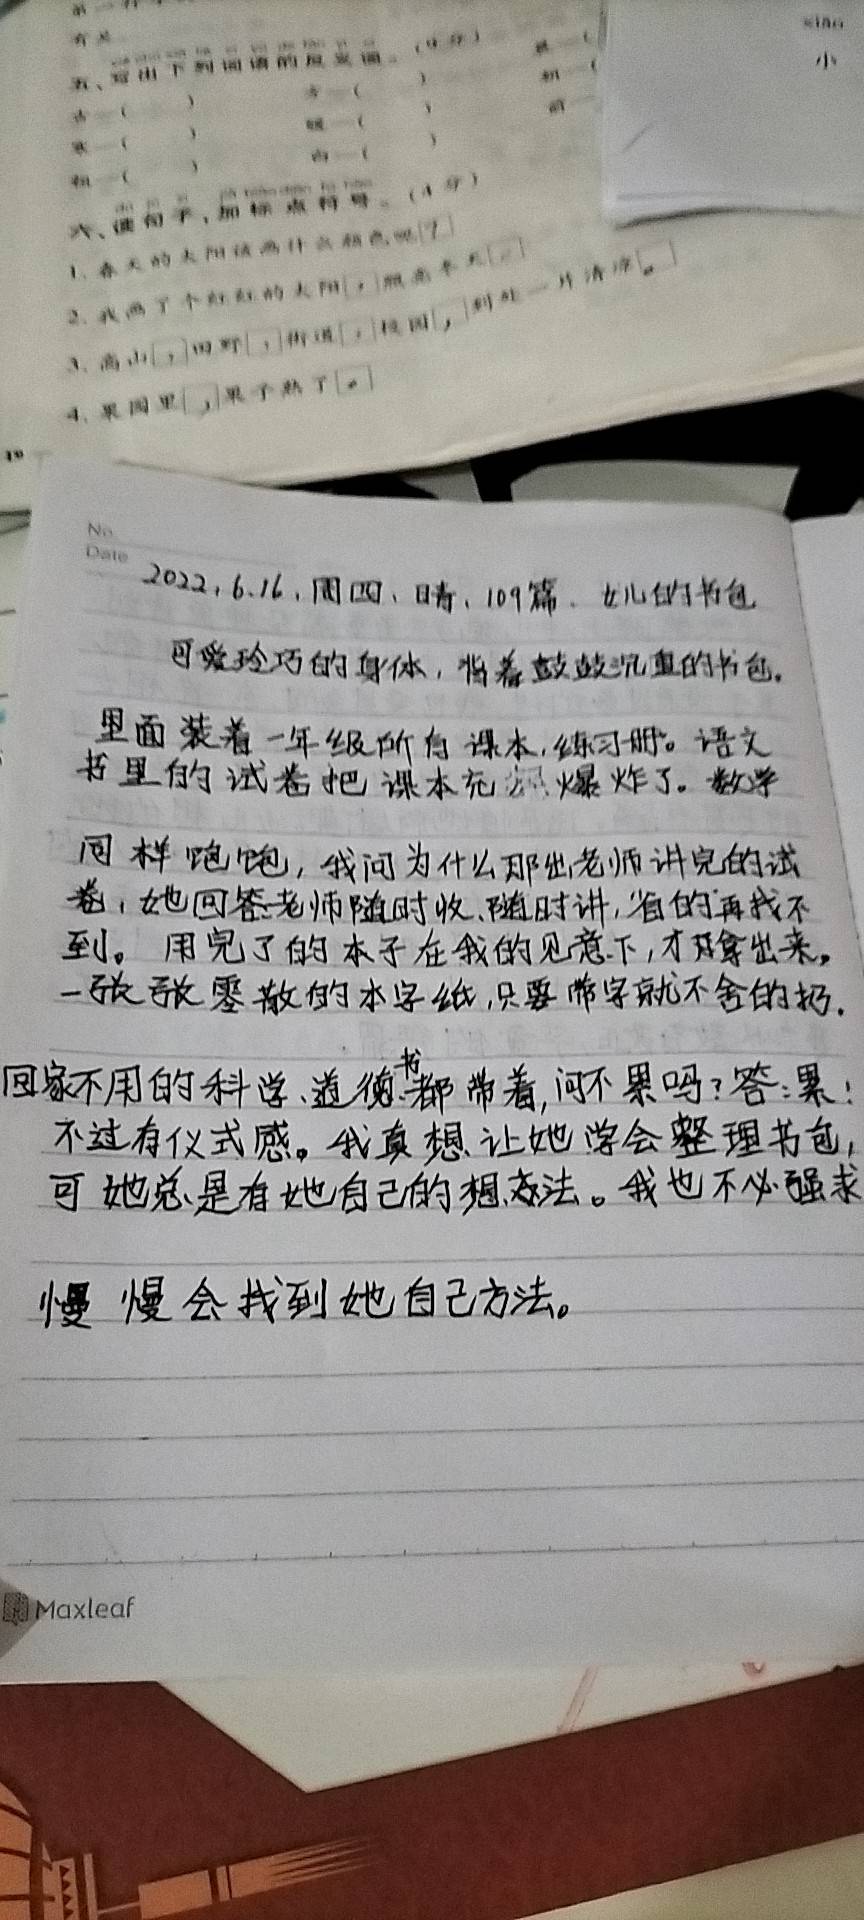 五、写出下列词语的反义词。(9分)
六、读句子,加标点符号。(4分)
1. 春天的太阳该画什么颜色呢[?]
2. 我画了个红红的太阳[,]照亮冬天[。]
3. 高山[,]田野[,]街道[,]校园[,]到处一片清凉[。]
4. 果园里[,]果子熟了[。]
xiǎo
小
No
Date
2022,6.16,周四、晴、109篇、女儿的书包
可爱玲巧的身体,背着鼓鼓沉重的书包。
里面装着一年级所有课本,练习册。语文
书里的试卷把课本充 爆炸了。数学
同样饱饱,我问为什么那些老师讲完的试
卷,她回答老师随时收、随时讲,省的再找不
到。用完了的本子在我的见意下,才拿出来。
一张张零散的本字纸,只要带字就不舍的扔.
回家不用的科学、道德书都带着,问不累吗?答:累!
不过有仪式感。我真想让她学会整理书包,
可她总是有她自己的想法。我也不必强求
慢慢会找到她自己方法。
Maxleaf